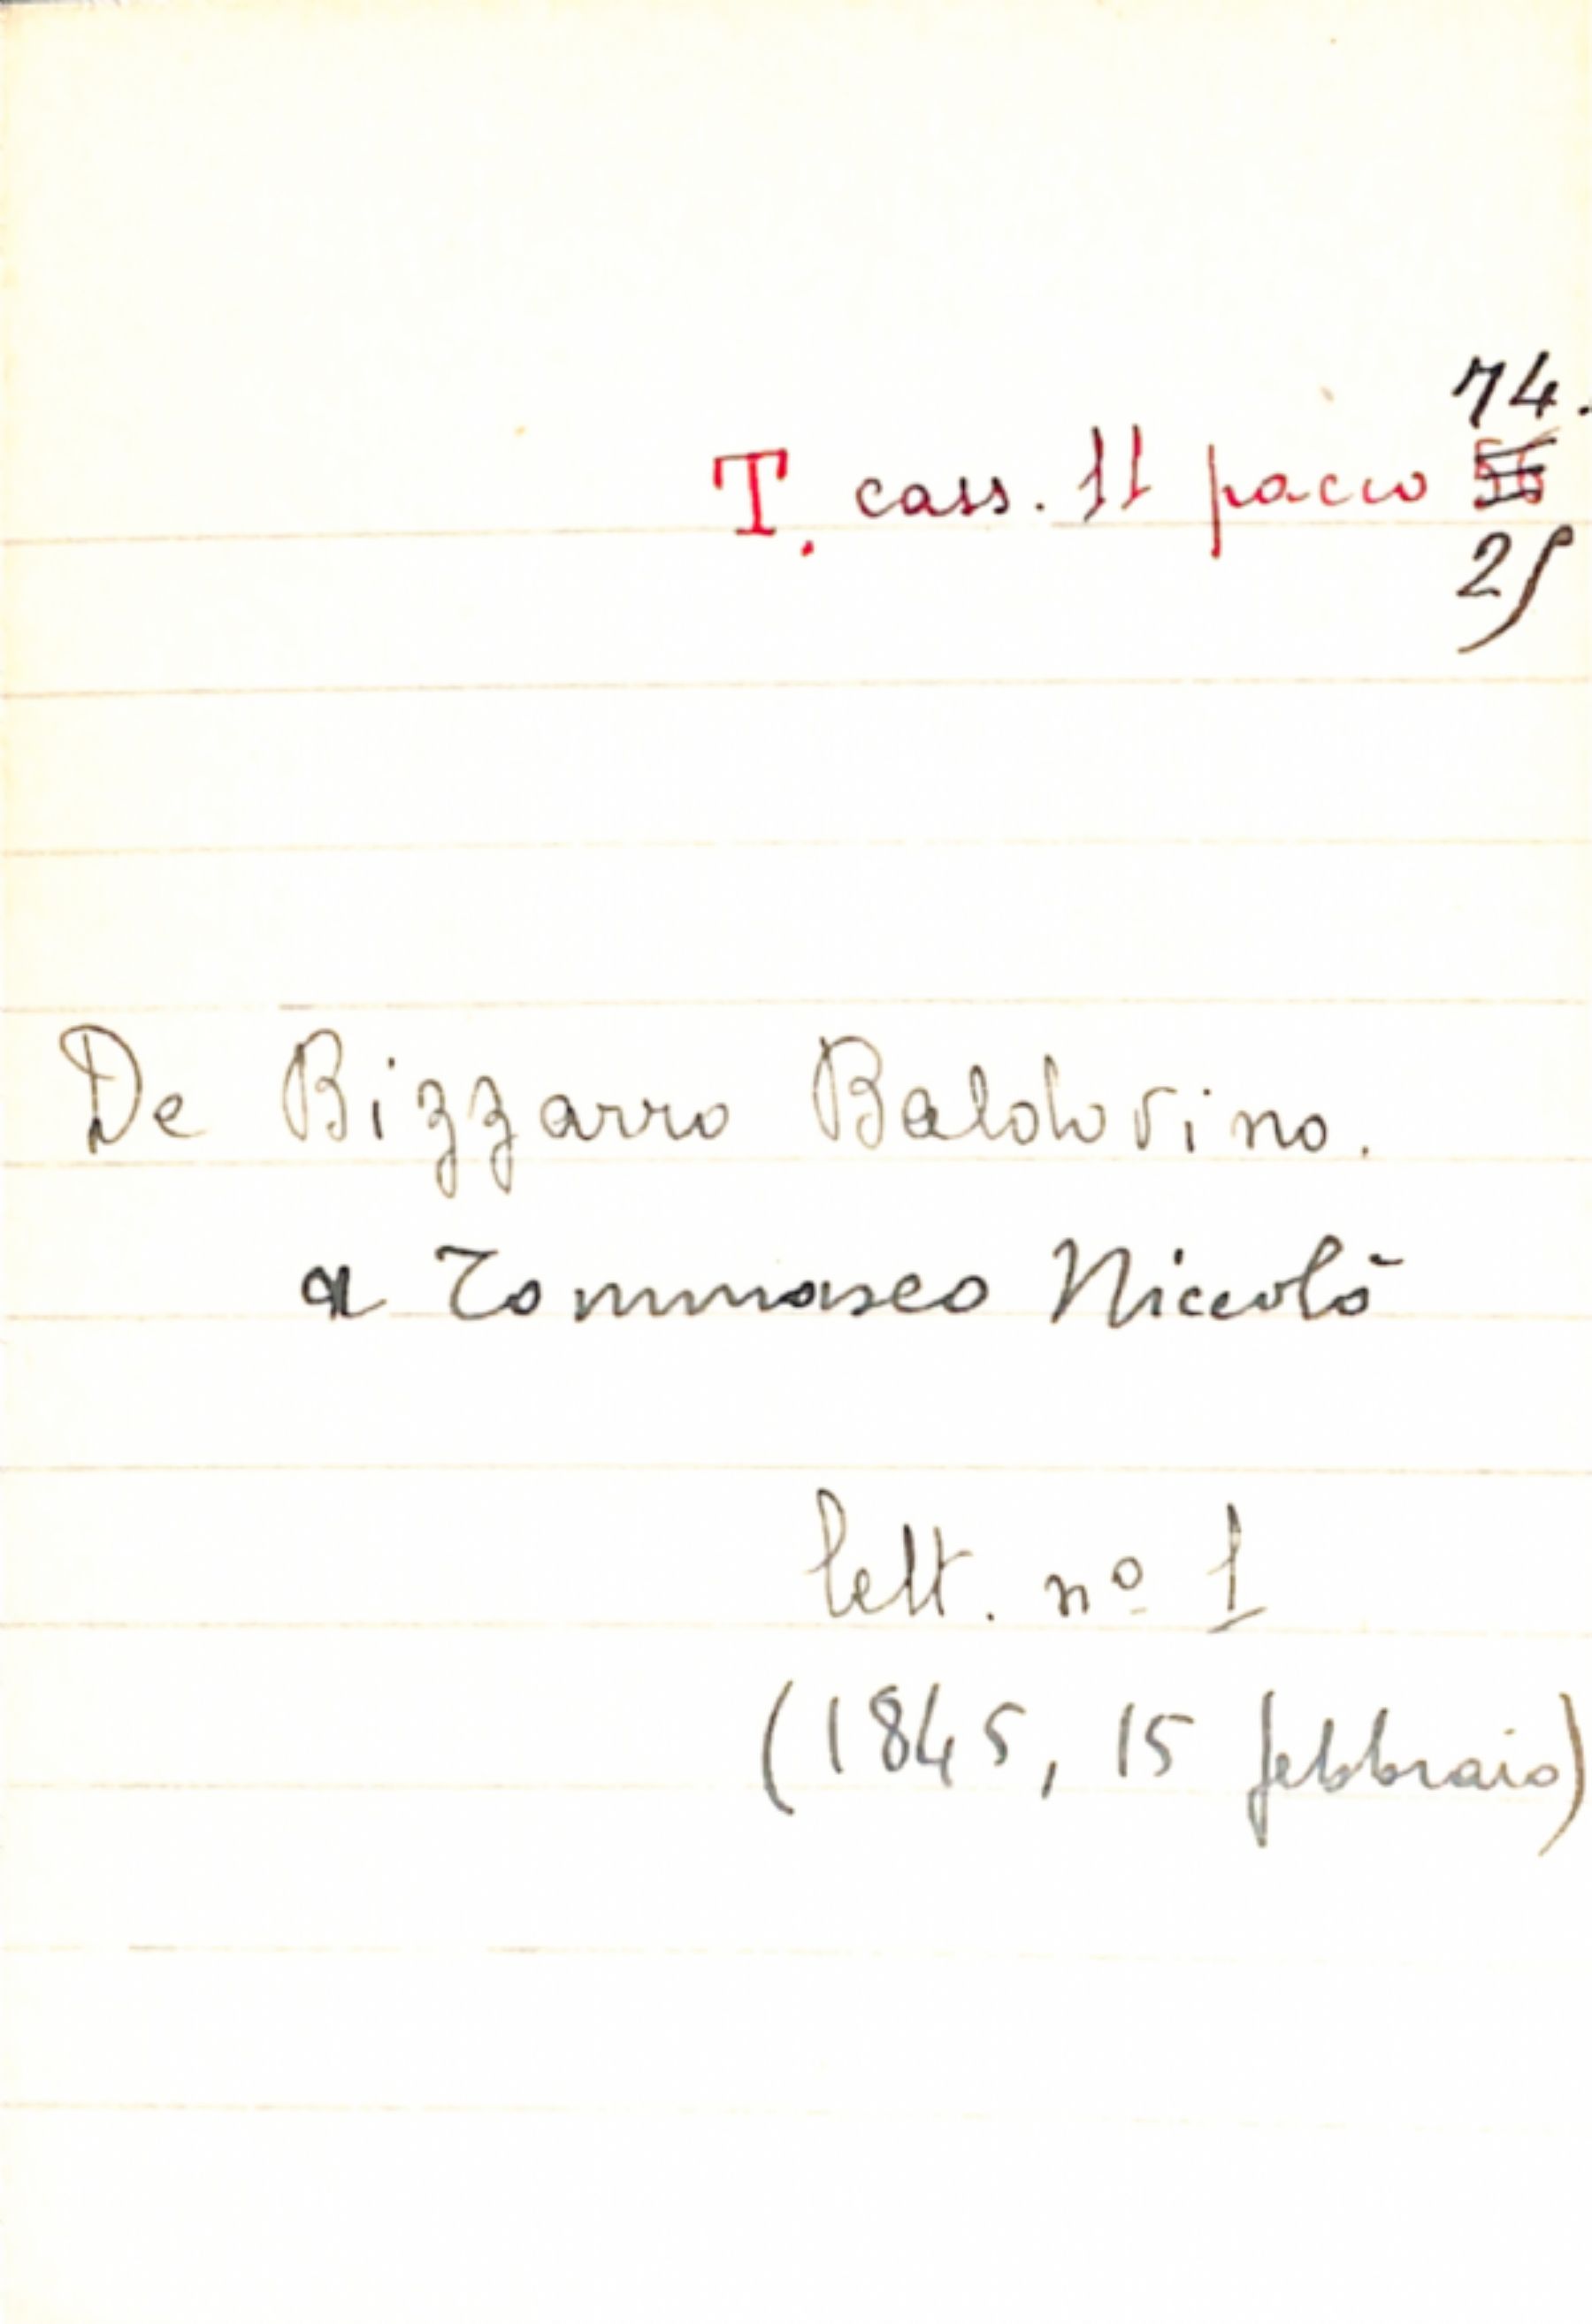 74.
T. cass. 11 pacco
25
De Bizzarro Baldovino.
a Tommaseo Niccolò
lett. nº 1
(1845, 15 febbraio)